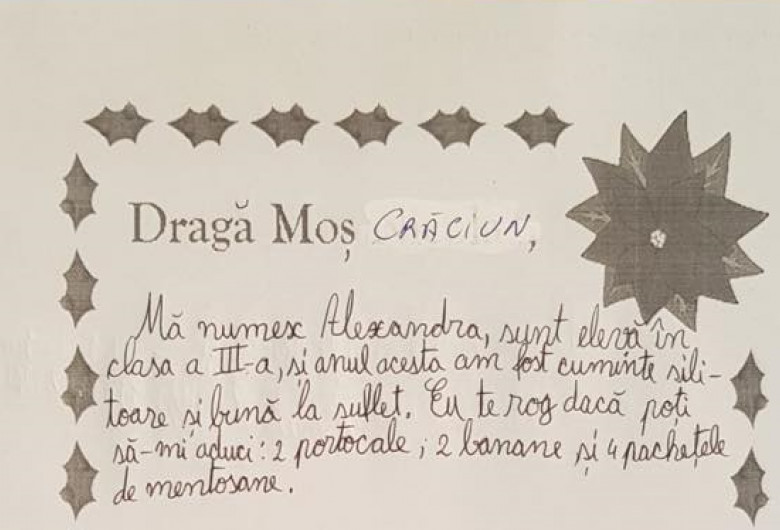 Dragă Moș CRĂCIUN,
Mă numesc Alexandra, sunt elevă în
clasa a III-a, și anul acesta am fost cuminte sili-
toare și bună la suflet. Eu te rog dacă poți
să-mi aduci: 2 portocale; 2 banane și 4 pachețele
de mentosane.